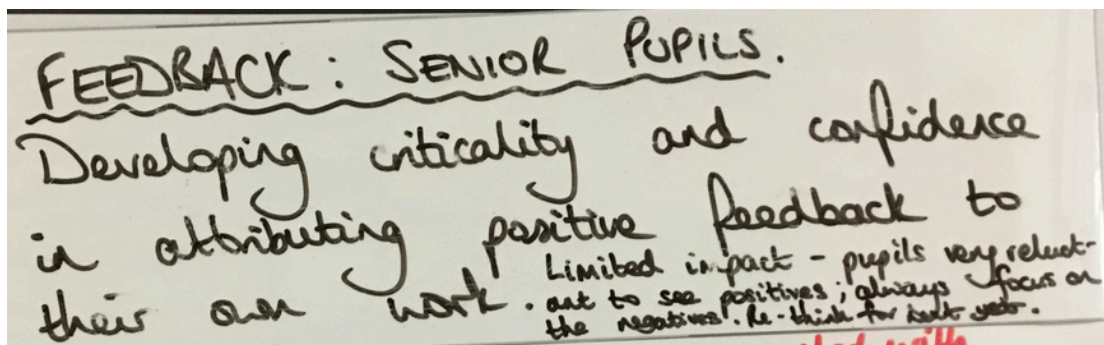 FEEDBACK : SENIOR PUPILS.
Developing criticality and confidence
in attributing positive feedback to
their own work.
Limited impact - pupils very reluct-
ant to see positives; always focus on
the negatives. Re-think for next year.
with